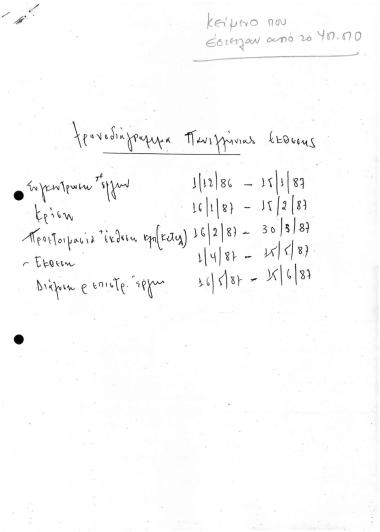 κείμενο που
έστειλαν από το ΥΠ.ΠΟ
Χρονοδιάγραμμα Πανελλήνιας Εκθεσης
Συγκεντρωση των έργων 1/12/86 – 15/1/87
Κρίση 16/1/87 – 15/2/87
Προετοιμασία έκθεσης κλπ 16/2/87 – 30/3/87
– Εκθεση 1/4/87 – 15/5/87
επιστρ. έργων 16/5/87 – 15/6/87